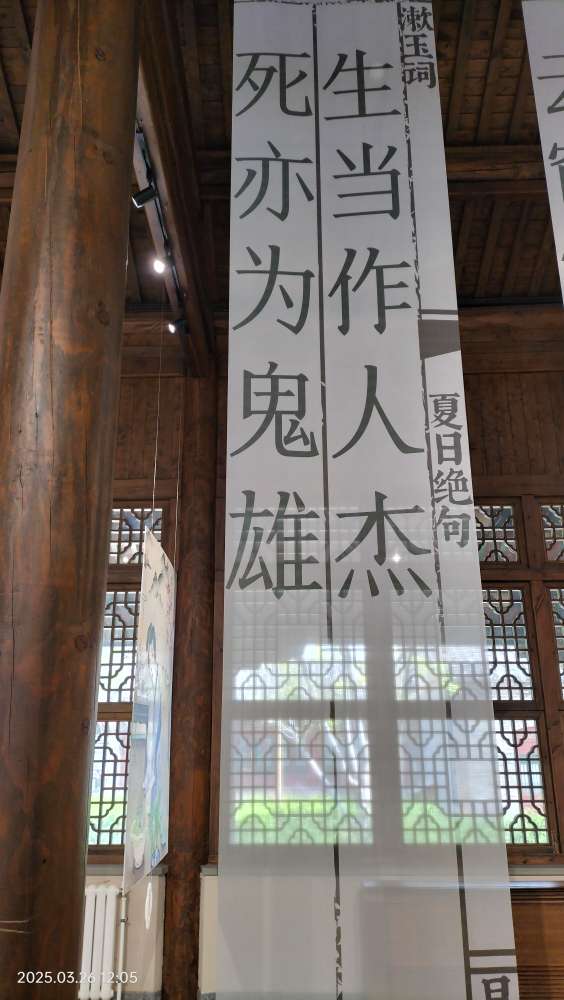 漱玉词
夏日绝句
生当作人杰
死亦为鬼雄
2025.03.26 12:05